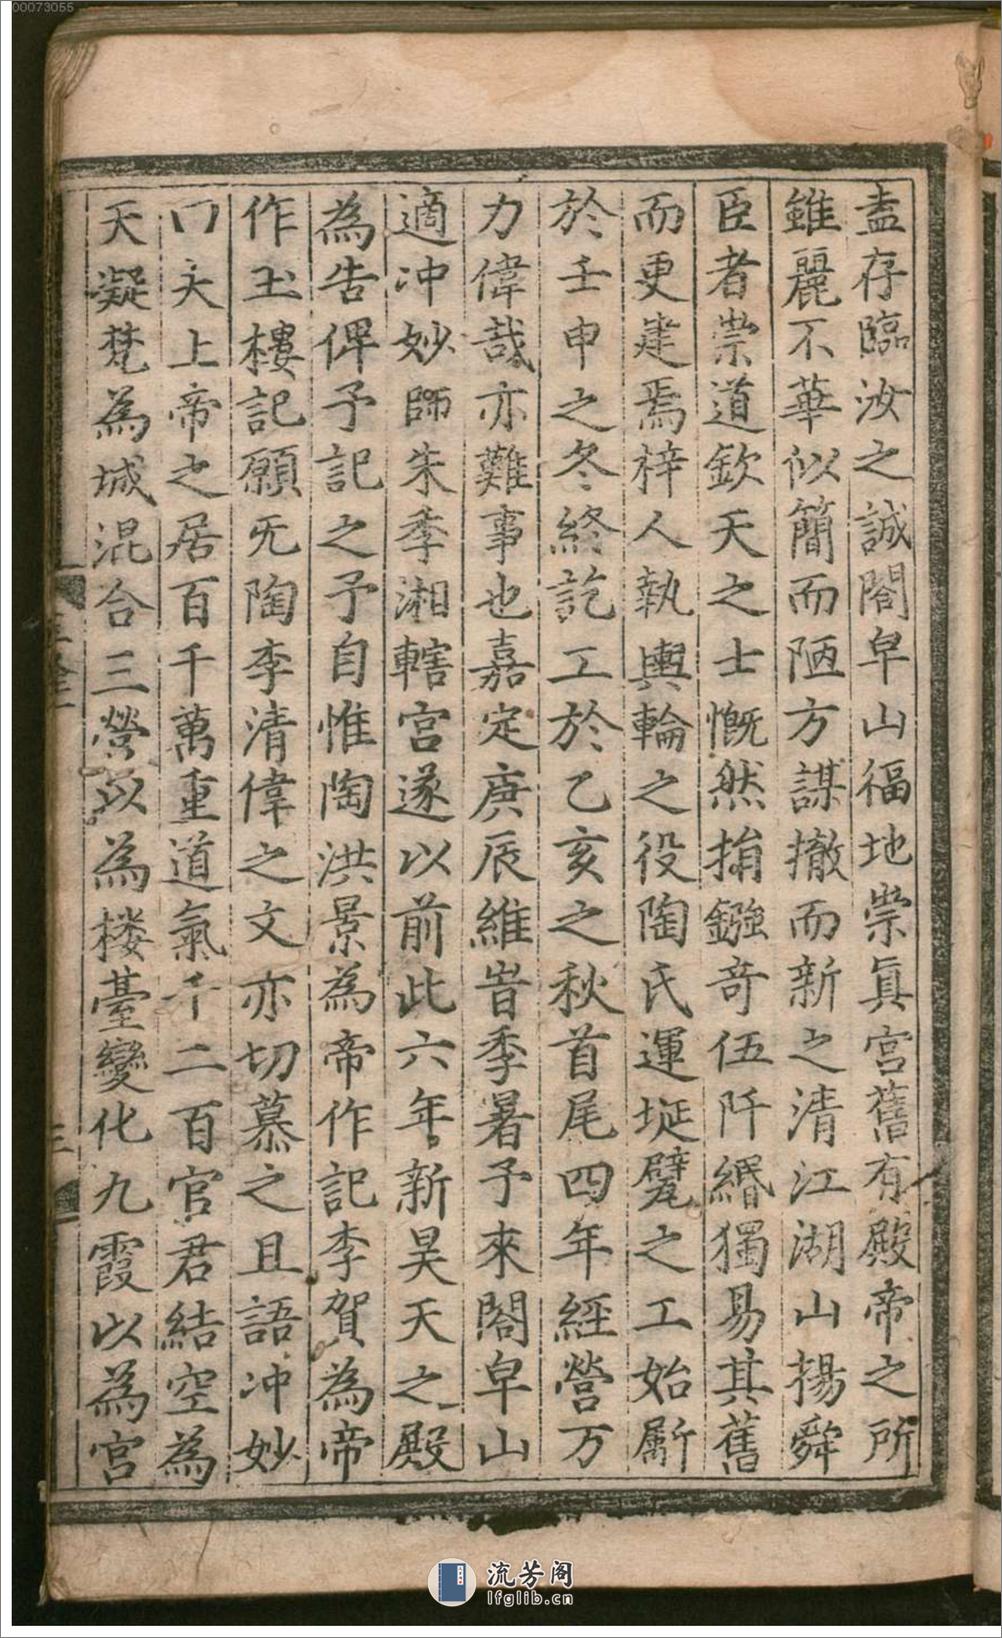 00073055
盡存臨汝之誠閤皁山福地崇眞宮舊有殿帝之所
雖麗不華似簡而陋方謀撤而新之清江湖山揚舜
臣者崇道欽天之士慨然捐鏹竒伍阡緡獨易其舊
而更建焉梓人執輿輪之役陶氏運埏甓之工始斸
於壬申之冬終訖工於乙亥之秋首尾四年經營万
力偉哉亦難事也嘉定庚辰維旹季暑予來閤皁山
適冲妙師朱季湘轄宮遂以前此六年新昊天之殿
為告俾予記之予自惟陶洪景為帝作記李賀為帝
作玉樓記願旡陶李清偉之文亦切慕之且語冲妙
曰夫上帝之居百千萬重道氣千二百官君結空為
天凝梵為城混合三營以為楼臺變化九霞以為宮
三
流芳阁
lfglib.cn